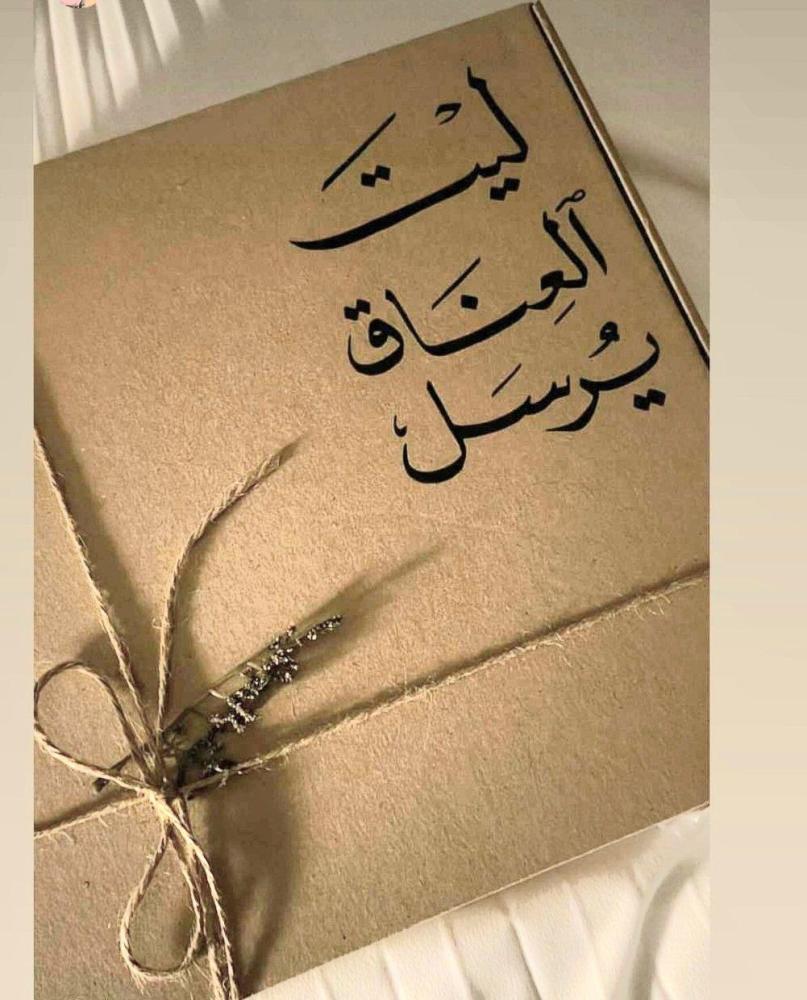 لَيْت
ٱلعِنَاق
يُرسَل